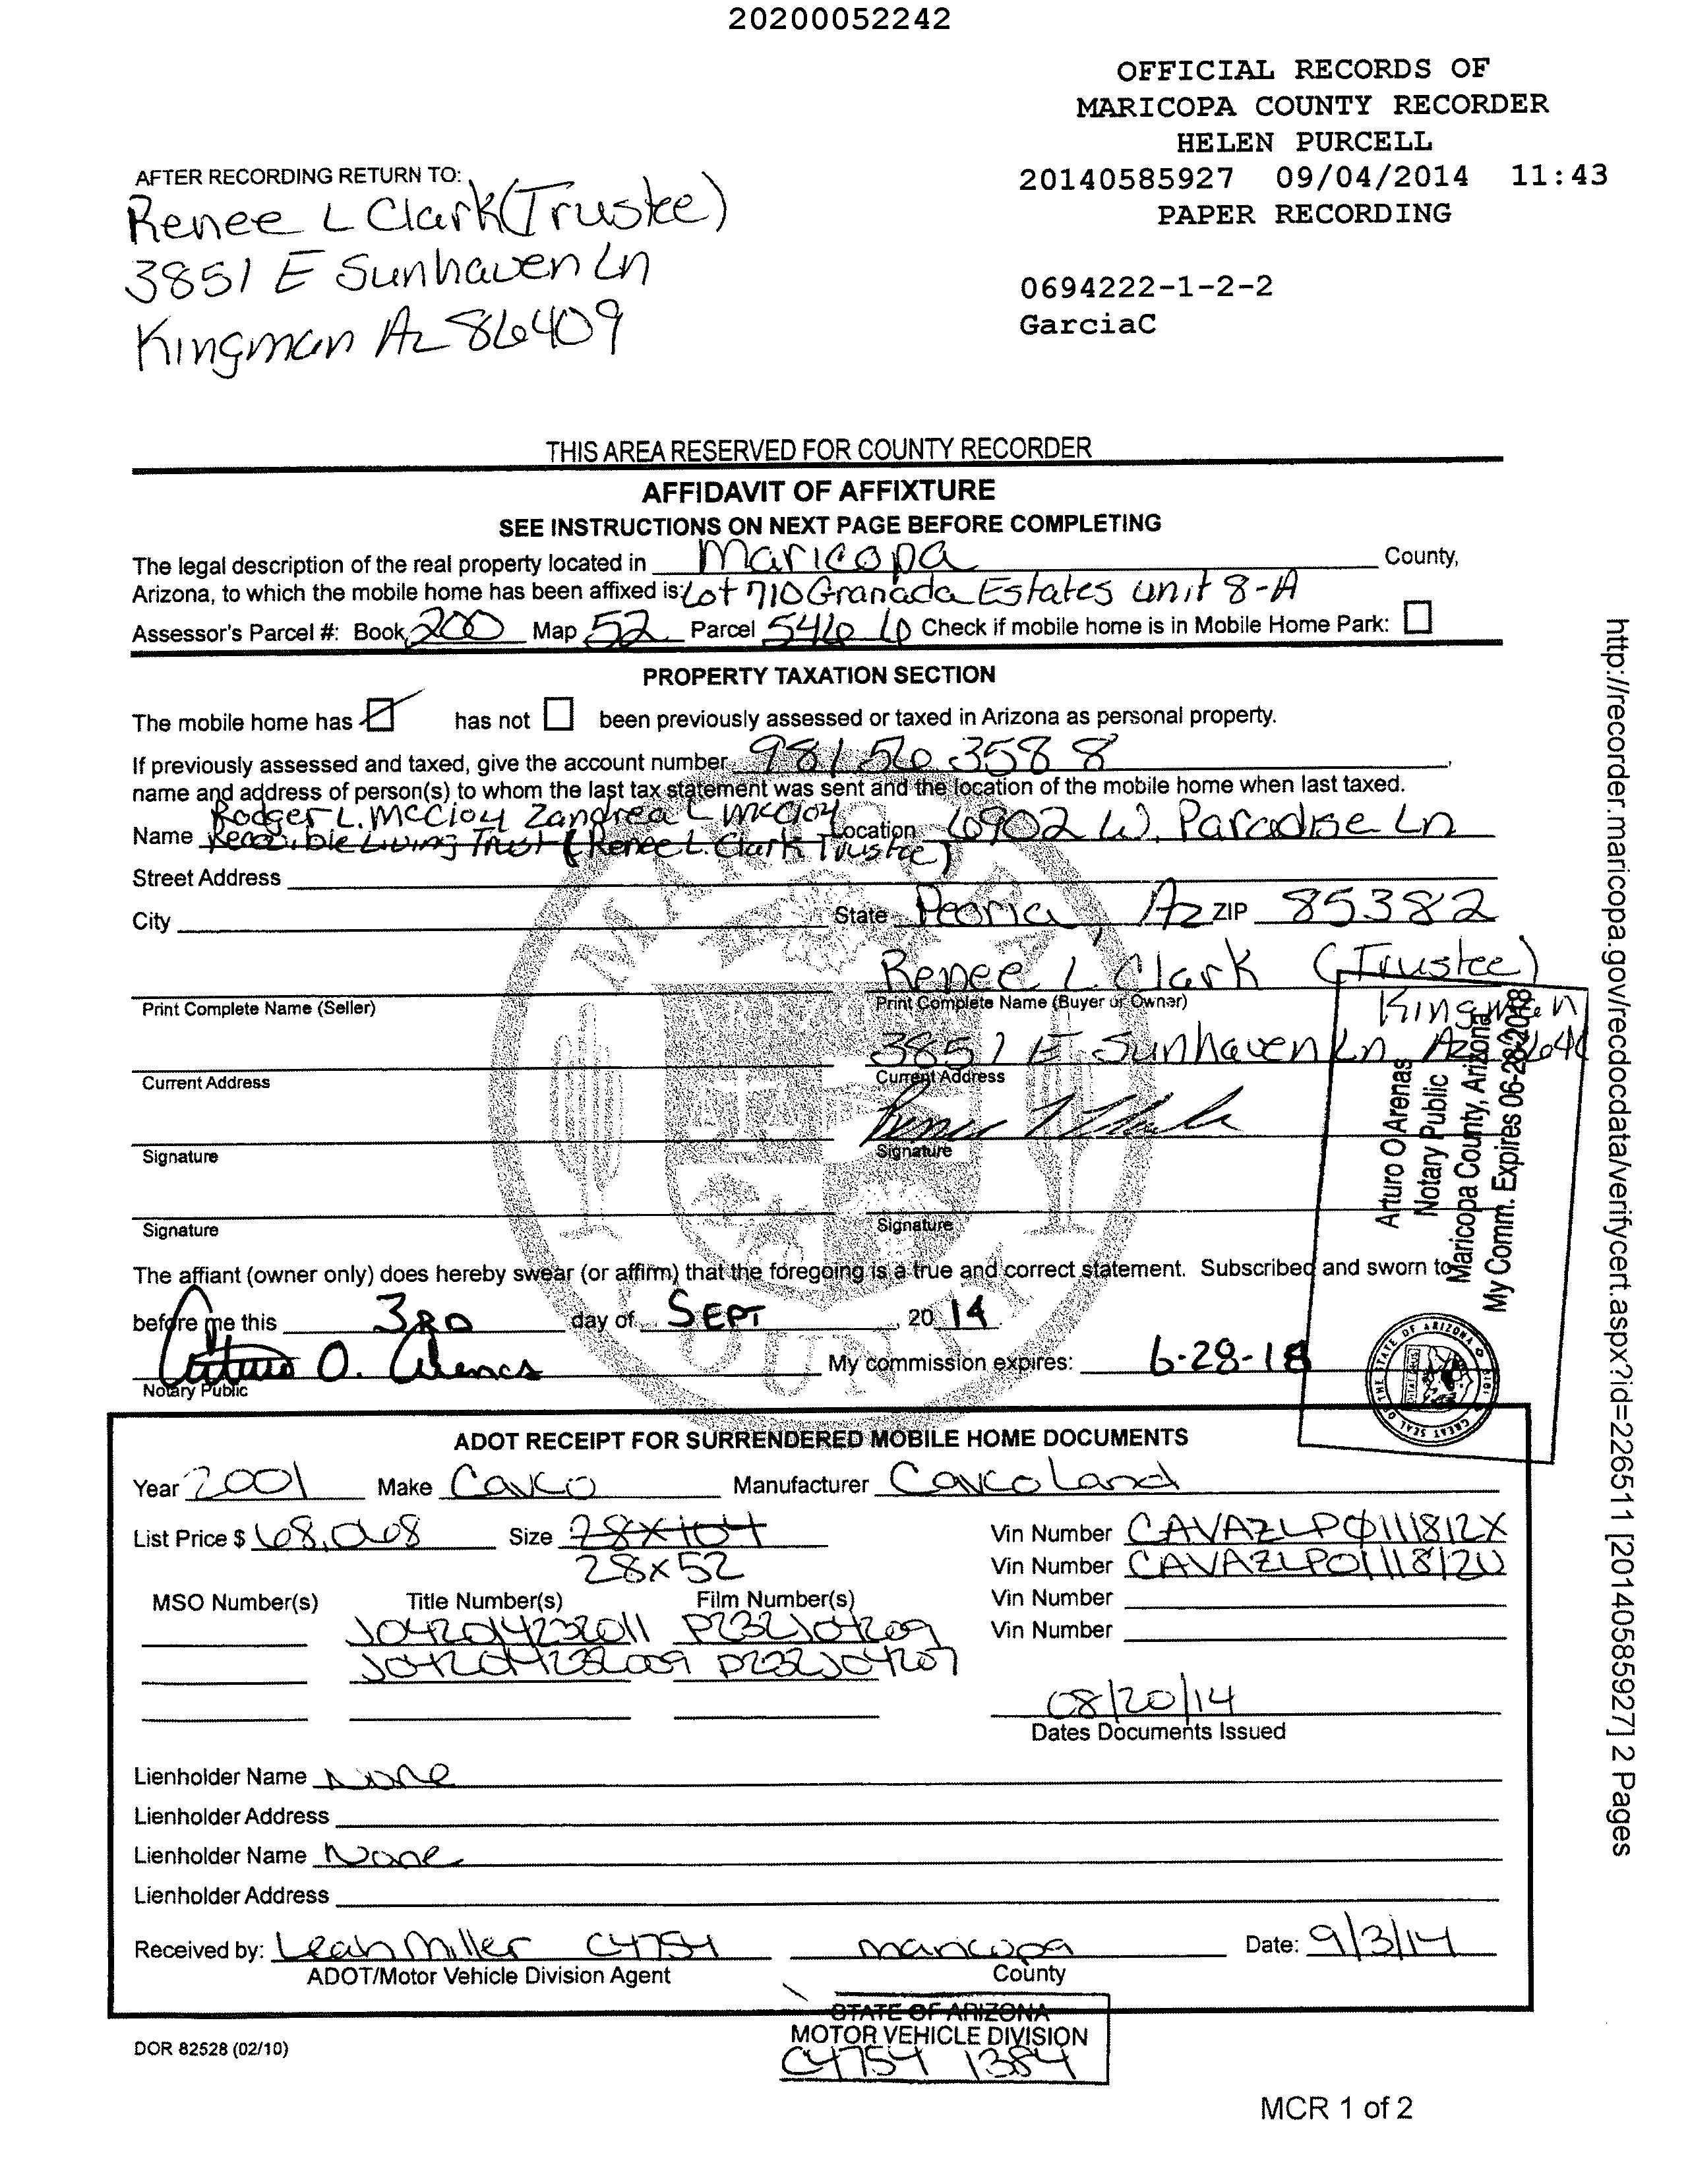 20200052242
OFFICIAL RECORDS OF
MARICOPA COUNTY RECORDER
HELEN PURCELL
20140585927 09/04/2014 11:43
PAPER RECORDING
0694222-1-2-2
GarciaC
AFTER RECORDING RETURN TO:
Renee L Clark (Trustee)
3851 E Sunhaven Ln
Kingman Az 86409
THIS AREA RESERVED FOR COUNTY RECORDER
AFFIDAVIT OF AFFIXTURE
SEE INSTRUCTIONS ON NEXT PAGE BEFORE COMPLETING
The legal description of the real property located in Maricopa County,
Arizona, to which the mobile home has been affixed is: Lot 710 Granada Estates unit 8-A
Assessor's Parcel #: Book 200 Map 52 Parcel 546 Check if mobile home is in Mobile Home Park:
PROPERTY TAXATION SECTION
The mobile home has has not been previously assessed or taxed in Arizona as personal property.
If previously assessed and taxed, give the account number 981563588,
name and address of person(s) to whom the last tax statement was sent and the location of the mobile home when last taxed.
Rodger L. McCloy Zandrea L McCloy
Name Living Trust (Renee L. Clark Trustee) Location 6902 W. Paradise Ln
Street Address
City State Peoria, Az ZIP 85382
Renee L. Clark (Trustee)
Print Complete Name (Seller) Print Complete Name (Buyer or Owner)
Kingman
3851 E Sunhaven Ln Az
Current Address Current Address
Signature Signature
Signature Signature
Arturo O Arenas
Notary Public
Maricopa County, Arizona
My Comm. Expires 06-28-2018
The affiant (owner only) does hereby swear (or affirm) that the foregoing is a true and correct statement. Subscribed and sworn to
before me this 3RD day of SEPT, 20 14
Arturo O. Arenas My commission expires: 6-28-18
Notary Public
ADOT RECEIPT FOR SURRENDERED MOBILE HOME DOCUMENTS
Year 2001 Make Cavco Manufacturer Cavco Land
List Price $ 68,068 Size 28x104 Vin Number CAVAZLP0111812X
28x52 Vin Number CAVAZLP0111812U
MSO Number(s) Title Number(s) Film Number(s) Vin Number
J042014232011 P232J04209 Vin Number
J042014232009 P232J04207
08/20/14
Dates Documents Issued
Lienholder Name None
Lienholder Address
Lienholder Name None
Lienholder Address
Received by: Leah Miller C4754 maricopa Date: 9/3/14
ADOT/Motor Vehicle Division Agent County
STATE OF ARIZONA
MOTOR VEHICLE DIVISION
C4754 1384
DOR 82528 (02/10)
MCR 1 of 2
http://recorder.maricopa.gov/recdocdata/verifycert.aspx?id=226511 [20140585927] 2 Pages